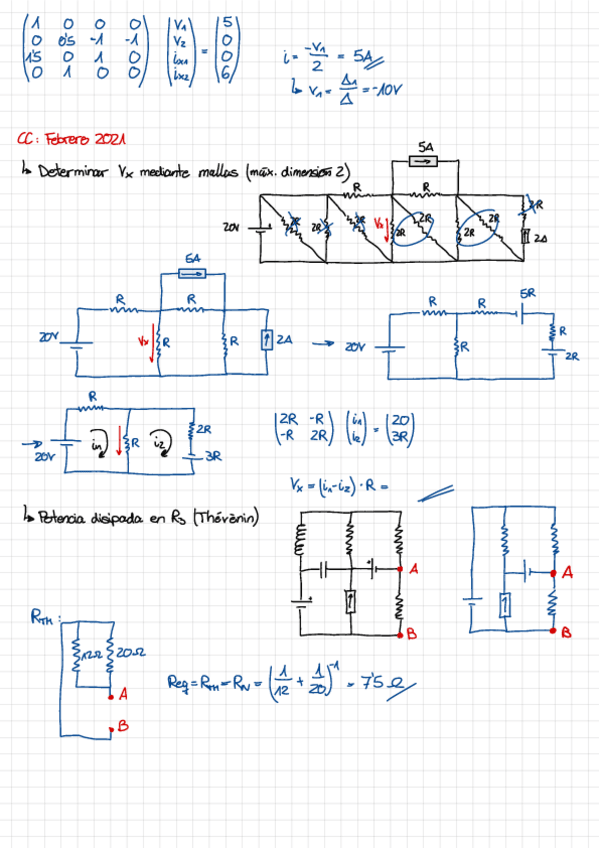 1 0 0 0 V1 5
0 0'5 -1 -1 V2 = 0
1'5 0 1 0 ix1 0
0 1 0 0 ix2 6
i = -V1/2 = 5A
↳ V1 = Δ1/Δ = -10V
CC: Febrero 2021
↳ Determinar Vx mediante mallas (máx. dimensión 2)
5A
R R
20V 2R 2R 2R Vx 2R 2R 2R 2R 2R
2A
5A
R R
20V Vx R R 2A
→
R R 5R
20V R R
2R
R
→ 20V i1 R i2 2R
3R
2R -R i1 = 20
-R 2R i2 3R
Vx = (i1-i2)·R =
↳ Potencia disipada en R3 (Thévenin)
A
B
A
B
RTH:
12Ω 20Ω
A
B
Req = RTH = RN = (1/12 + 1/20)^-1 = 7'5 Ω